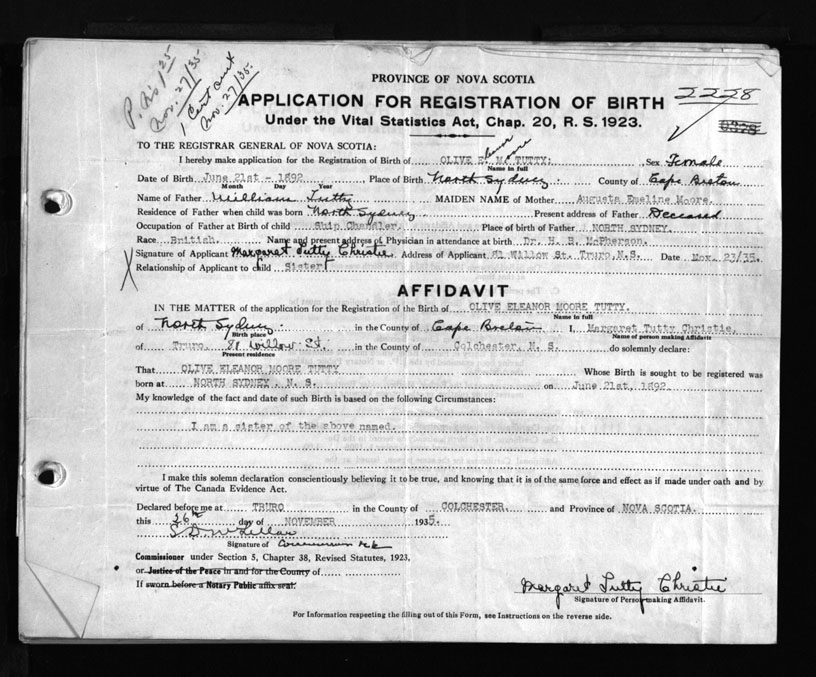 P. His 1.25
Nov. 27/35
1 Cert sent
Nov. 27/35
PROVINCE OF NOVA SCOTIA
APPLICATION FOR REGISTRATION OF BIRTH
2228
Under the Vital Statistics Act, Chap. 20, R. S. 1923.
TO THE REGISTRAR GENERAL OF NOVA SCOTIA:
I hereby make application for the Registration of Birth of OLIVE E. M. TUTTY: Sex Female
Name in full
Date of Birth June 21st - 1892 Place of Birth North Sydney County of Cape Breton
Month Day Year
Name of Father William Tutty MAIDEN NAME of Mother Augusta Emeline Moore.
Residence of Father when child was born North Sydney Present address of Father Deceased
Occupation of Father at Birth of child Ship Chandler. Place of birth of Father NORTH SYDNEY.
Race British. Name and present address of Physician in attendance at birth Dr. H. B. McPherson.
Signature of Applicant Margaret Tutty Christie Address of Applicant 81 Willow St. Truro, N.S. Date Nov. 23/35.
Relationship of Applicant to child Sister
AFFIDAVIT
IN THE MATTER of the application for the Registration of the Birth of OLIVE ELEANOR MOORE TUTTY.
Name in full
of North Sydney. in the County of Cape Breton I, Margaret Tutty Christie,
Birth place Name of person making Affidavit
of Truro, 81 Willow St. in the County of Colchester, N. S. do solemnly declare:
Present residence
That OLIVE ELEANOR MOORE TUTTY Whose Birth is sought to be registered was
born at NORTH SYDNEY, N. S. on June 21st, 1892.
My knowledge of the fact and date of such Birth is based on the following Circumstances:
I am a sister of the above named.
I make this solemn declaration conscientiously believing it to be true, and knowing that it is of the same force and effect as if made under oath and by
virtue of The Canada Evidence Act.
Declared before me at TRURO in the County of COLCHESTER. and Province of NOVA SCOTIA.
this 26th day of NOVEMBER 1935.
Signature of
Commissioner under Section 5, Chapter 38, Revised Statutes, 1923,
or Justice of the Peace in and for the County of
If sworn before a Notary Public affix seal.
Margaret Tutty Christie
Signature of Person making Affidavit.
For Information respecting the filling out of this Form, see Instructions on the reverse side.